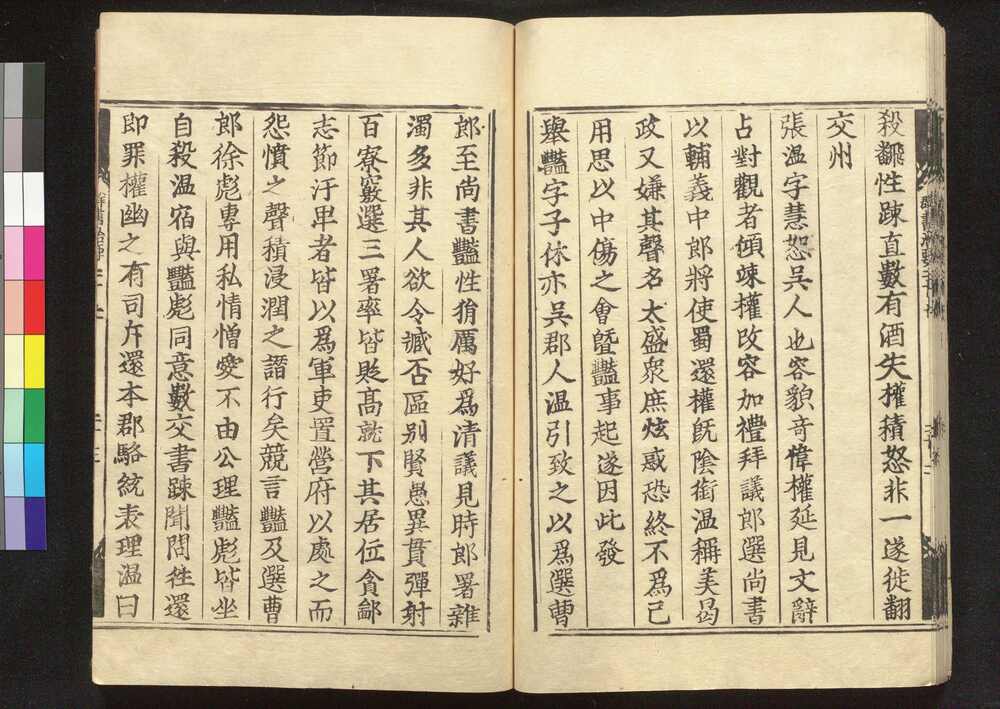 殺飜性踈直數有酒失權積怒非一遂徙翻
交州
張温字慧恕吳人也容貌竒偉權延見文辭
占對觀者傾竦權改容加禮拜議郎選尚書
以輔義中郎將使蜀還權旣陰銜温稱美蜀
政又嫌其聲名太盛衆庶炫惑恐終不爲己
用思以中傷之會曁豔事起遂因此發
舉豔字子休亦吳郡人温引致之以爲選曹
郎至尚書豔性狷厲好爲清議見時郎署雜
濁多非其人欲令臧否區别賢愚異貫彈射
百寮竅選三署率皆貶髙就下其居位貪鄙
志節汙卑者皆以爲軍吏置營府以處之而
怨憤之聲積浸潤之譖行矣競言豔及選曹
郎徐彪專用私情憎愛不由公理豔彪皆坐
自殺温宿與豔彪同意數交書踈聞問徃還
即罪權幽之有司斥還本郡駱統表理温曰